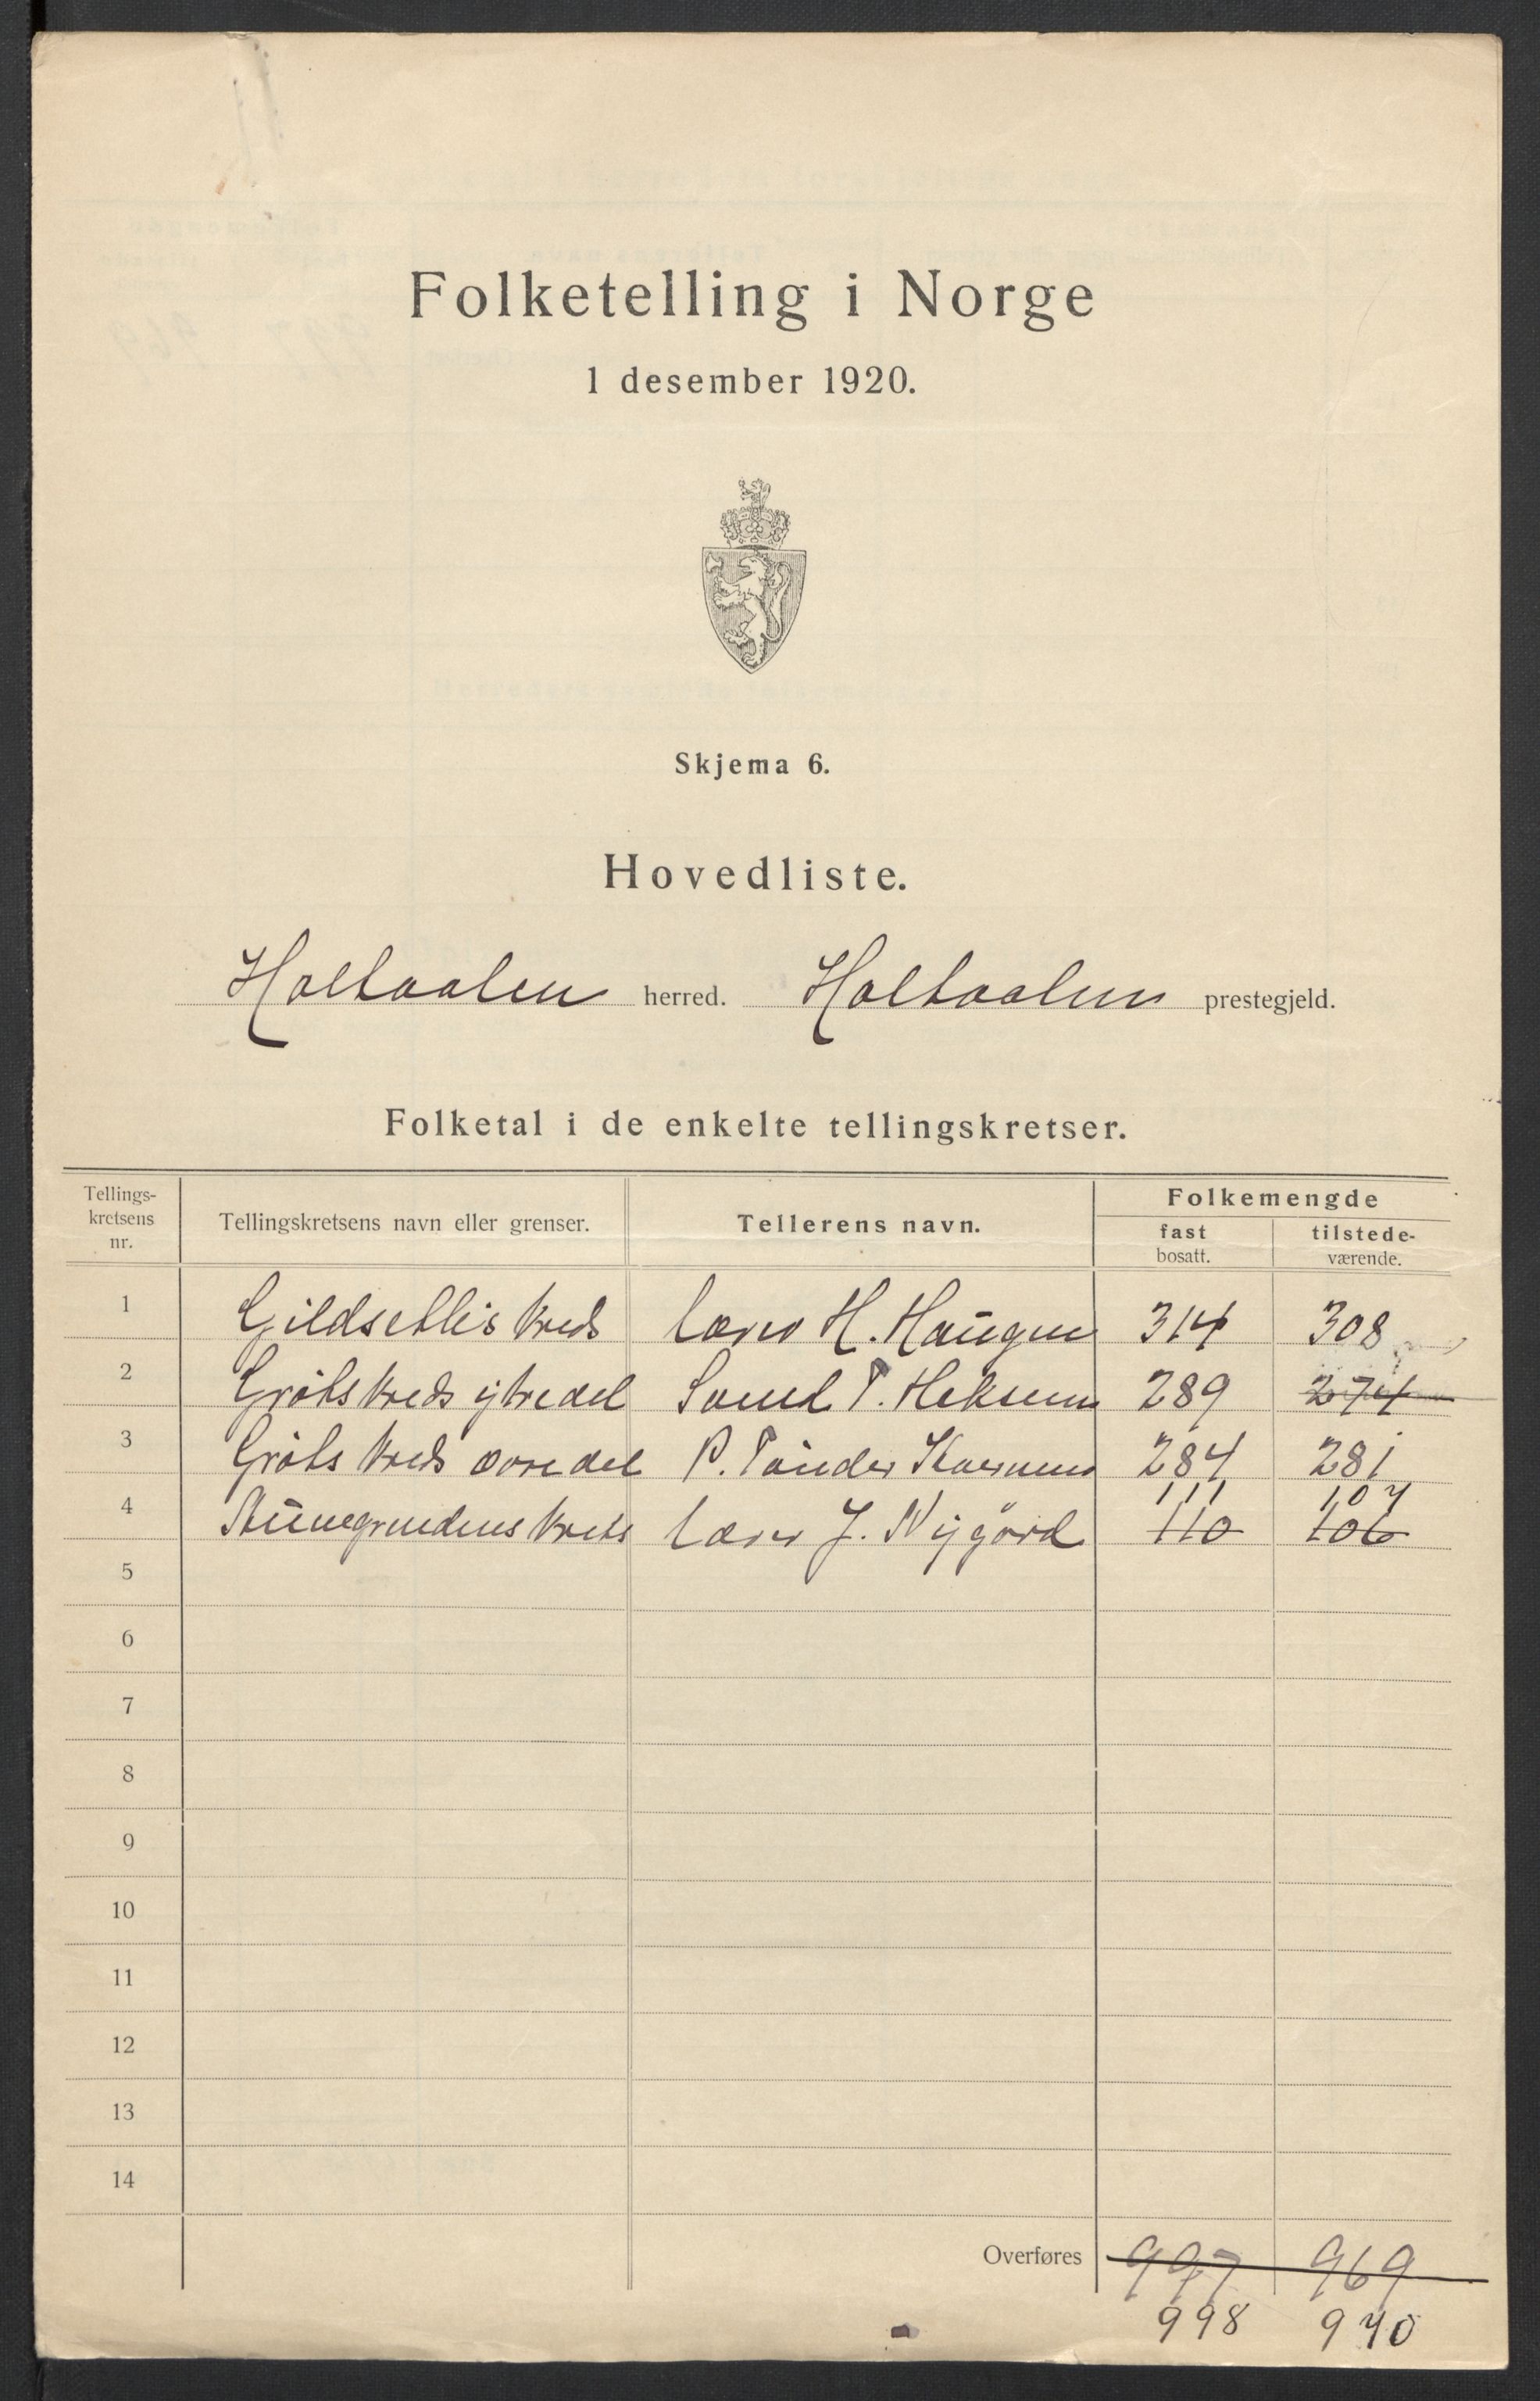 Folketelling i Norge
1 desember 1920.
Skjema 6.
Hovedliste.
Holtaalen herred. Holtaalen prestegjeld.
Folketal i de enkelte tellingskretser.
Tellings-
kretsens
nr.
Tellingskretsens navn eller grenser.
Tellerens navn.
Folkemengde
fast
bosatt.
tilstede-
værende.
1 Gildsetlis kreds lærer H. Haugen 314 308
2 Gröts kreds ytredel P. 289 274
3 Gröts kreds övredel P. 284 281
111 107
4 krets lærer J. Nygård 110 106
5
6
7
8
9
10
11
12
13
14
Overføres 997 969
998 970